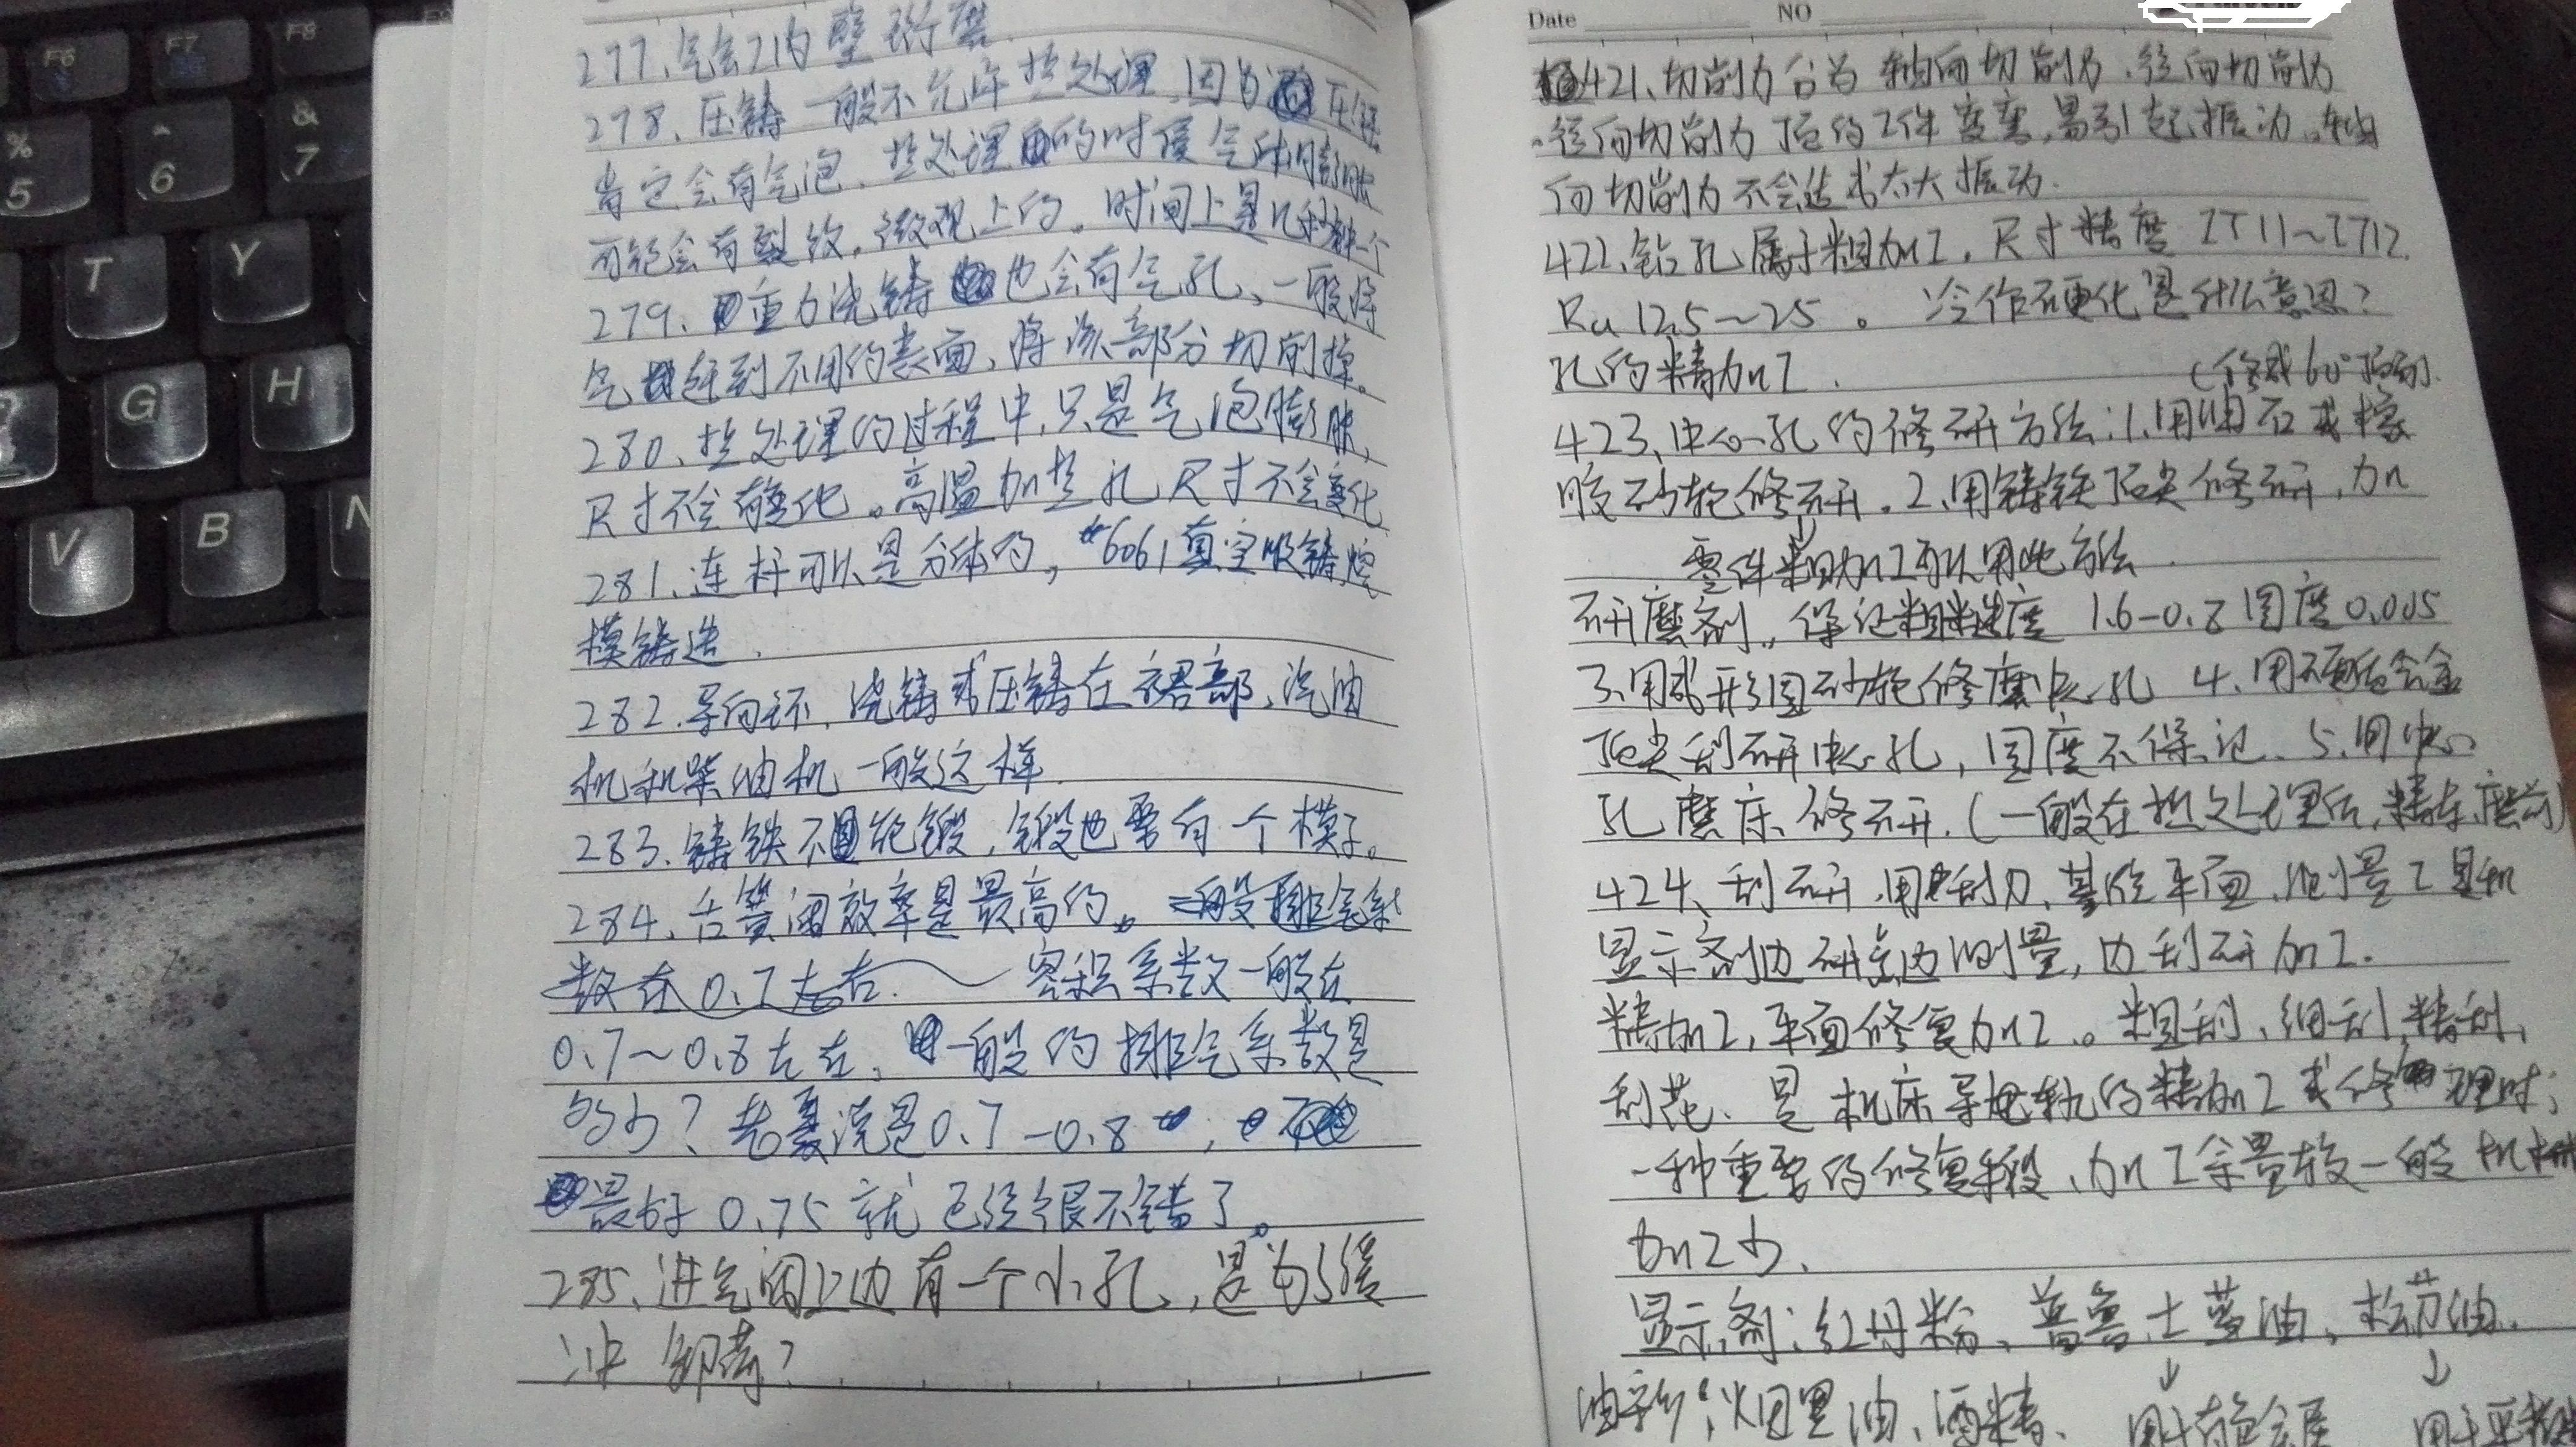 F6
F7
F8
%
5
^
6
&
7
T
Y
G
H
V
B
N
277、气缸内壁珩磨.
278、压铸一般不允许热处理,因为压铸
肯定会有气泡,热处理的时候气体膨胀
可能会有裂纹,微观上的。时间上是几秒钟一个
279、重力浇铸也会有气孔、一般将
气赶到不用的表面,将该部分切削掉。
280、热处理的过程中,只是气泡膨胀,
尺寸不会有变化。高温加热孔尺寸不会变化
281、连杆可以是分体的,"6061真空吸铸熔
模铸造.
282、导向环,浇铸或压铸在裙部,汽油
机和柴油机一般这样.
283、铸铁不能锻,锻也要有一个模子。
284、舌簧阀效率是最高的。一般排气系
数在0.7左右. 容积系数一般在
0.7~0.8左右,一般的排气系数是
多少?老夏说是0.7-0.8,
最好0.75就已经很不错了。
285、进气阀上边有一个小孔,是为了缓
冲卸荷?
Date NO
421、切削力分为轴向切削力、径向切削力
.径向切削力顶的工件弯变,易引起振动。轴
向切削力不会造成太大振动.
422、钻孔属于粗加工,尺寸精度IT11~IT12.
Ra 12.5~25。 冷作硬化是什么意思?
孔的精加工. (修成60°顶角).
423、中心孔的修研方法:1.用油石或橡
胶砂轮修研。2、用铸铁顶尖修研,加
零件粗加工可以用此方法.
研磨剂,保证粗糙度 1.6-0.8圆度0.005
3、用成形圆砂轮修磨中心孔 4、用硬质合金
顶尖刮研中心孔,圆度不保证. 5、用中心
孔磨床修研.(一般在热处理后,精车、磨前)
424、刮研、用刮刀、基准平面、测量工具和
显示剂边研点边测量,边刮研加工.
精加工,平面修复加工。粗刮、细刮、精刮、
刮花、是机床导轨的精加工或修理时;
一种重要的修复手段、加工余量较一般机械
加工少.
显示剂:红丹粉、普鲁士蓝油、松节油.
↓ ↓
烟黑油、酒精、 用于有色金属 用于